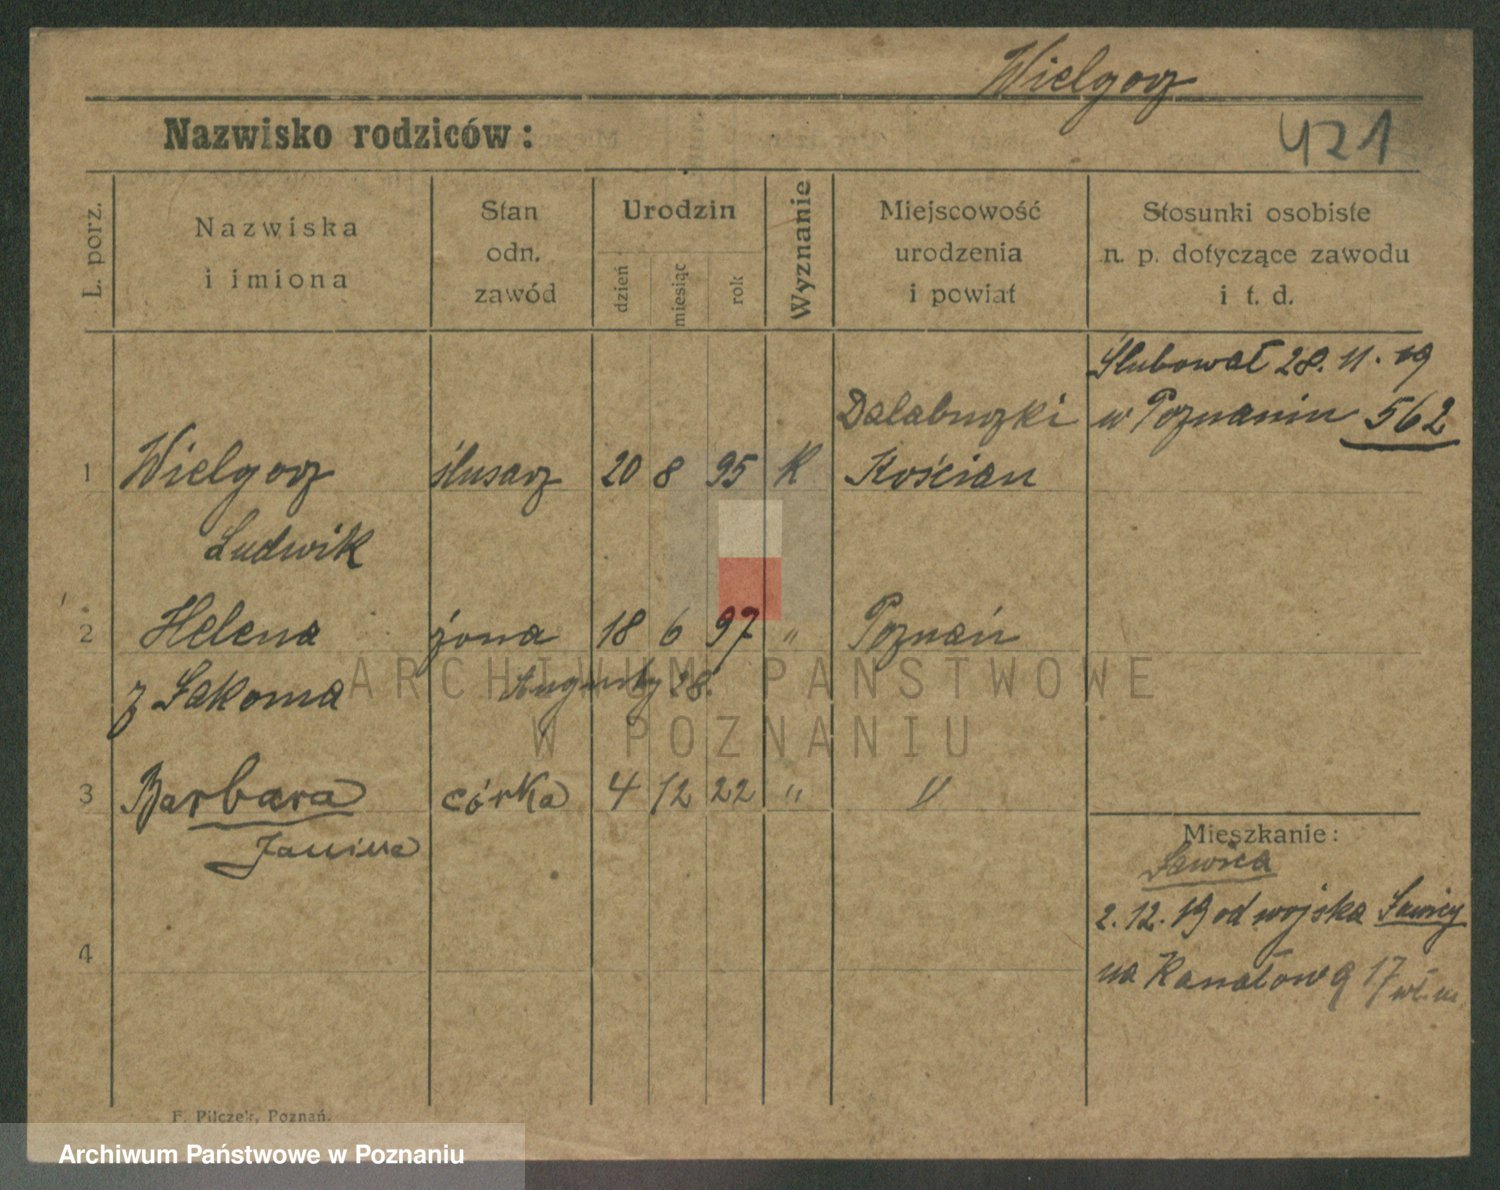 Wielgosz
Nazwisko rodziców:
421
L. porz.
Nazwiska
i imiona
Stan
odn.
zawód
Urodzin
dzień
miesiąc
rok
Wyznanie
Miejscowość
urodzenia
i powiat
Stosunki osobiste
n. p. dotyczące zawodu
i t. d.
Ślubował 28. 11. 19
w Poznaniu 562
Dalabuszki
1 Wielgosz ślusarz 20 8 95 K Kościan
Ludwik
2 Helena żona 18 6 97 " Poznań
z Łakoma
ARCHIWUM PAŃSTWOWE
W POZNANIU
3 Barbara córka 4 12 22 " "
Janina
Mieszkanie:
Ławica
2. 12. 19 od wojska Ławicy
na Kanałowa 17
4
F. Pilczek, Poznań.
Archiwum Państwowe w Poznaniu